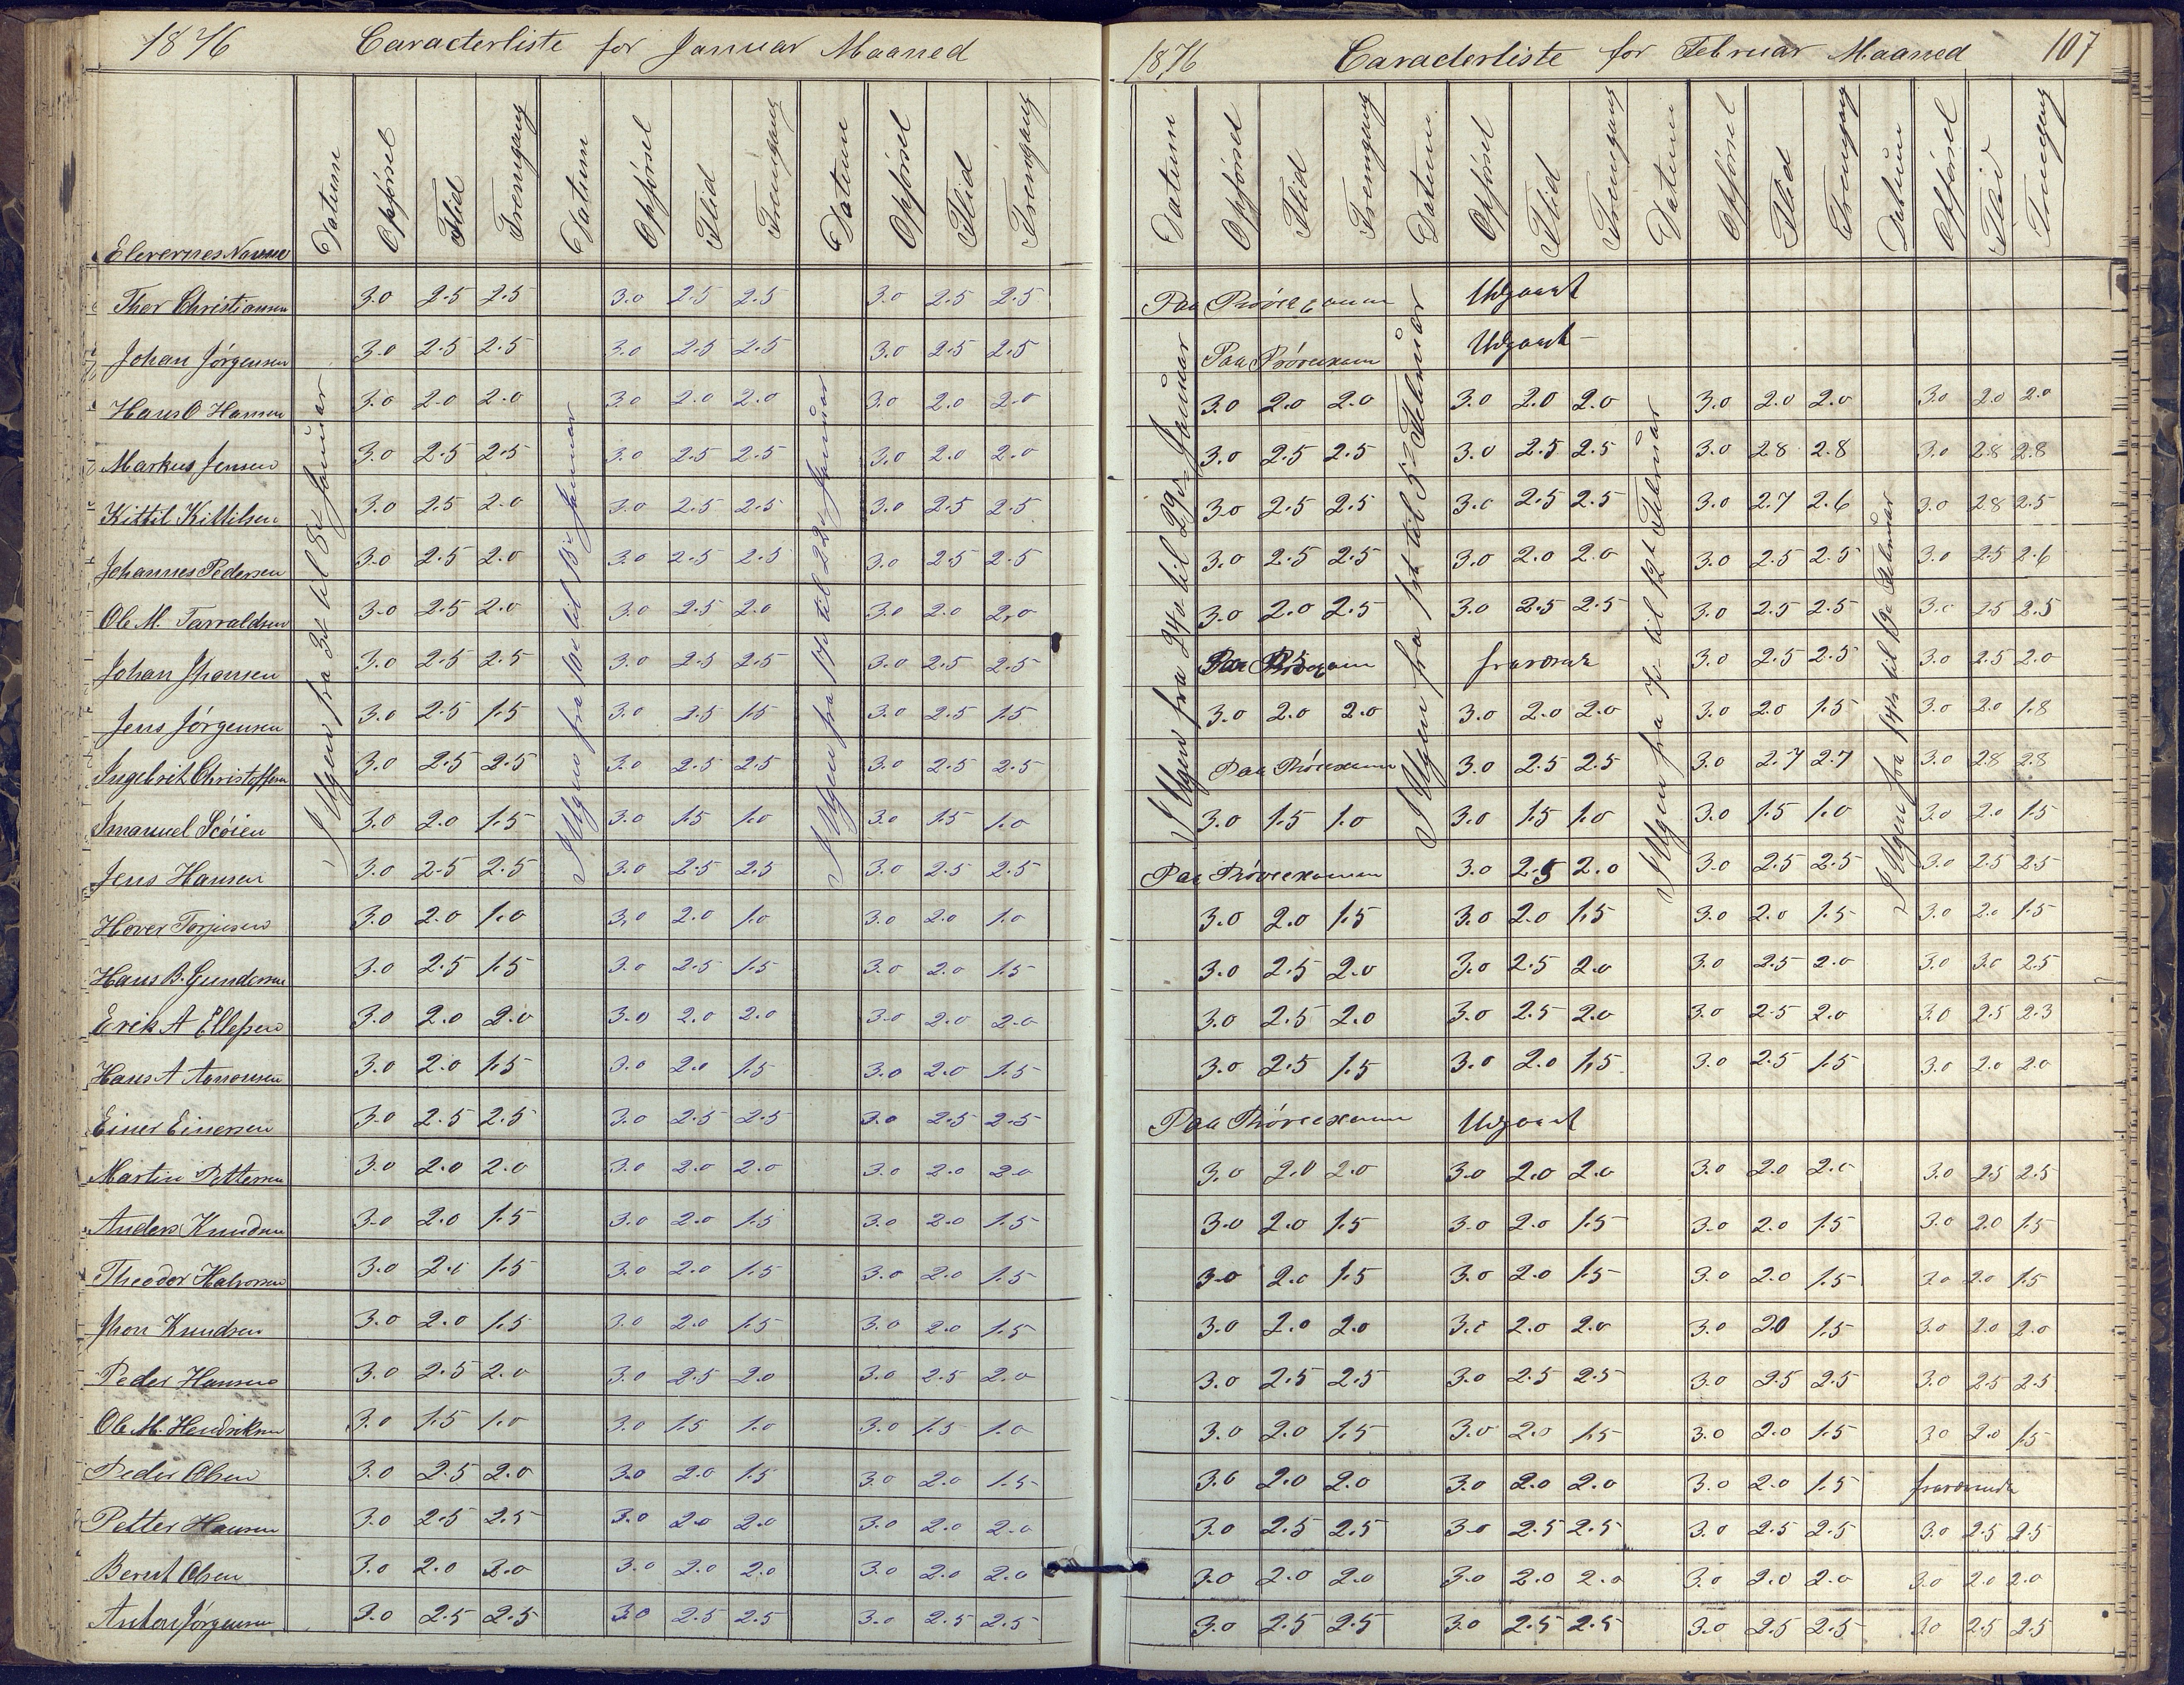 1876 Caracterliste for Januar Maaned
Elevernes Navne Datum Opførsel Flid Fremgang Datum Opførsel Flid Fremgang Datum Opførsel Flid Fremgang
I Ugen fra 3d til 8d Januar
I Ugen fra 10d til 15d Januar
I Ugen fra 17d til 22d Januar
Thor Christiansen 3.0 2.5 2.5 3.0 2.5 2.5 3.0 2.5 2.5
Johan Jørgensen 3.0 2.5 2.5 3.0 2.5 2.5 3.0 2.5 2.5
Hans O Hansen 3.0 2.0 2.0 3.0 2.0 2.0 3.0 2.0 2.0
Markus Jensen 3.0 2.5 2.5 3.0 2.5 2.5 3.0 2.0 2.0
Kittil Kittilsen 3.0 2.5 2.0 3.0 2.5 2.5 3.0 2.5 2.5
Johannes Pedersen 3.0 2.5 2.0 3.0 2.5 2.5 3.0 2.5 2.5
Ole M. Tarraldsen 3.0 2.5 2.0 3.0 2.5 2.0 3.0 2.0 2.0
Johan Jhansen 3.0 2.5 2.5 3.0 2.5 2.5 3.0 2.5 2.5
Jens Jørgensen 3.0 2.5 1.5 3.0 2.5 1.5 3.0 2.5 1.5
Ingebrit Christoffersen 3.0 2.5 2.5 3.0 2.5 2.5 3.0 2.5 2.5
Imanuel Scøien 3.0 2.0 1.5 3.0 1.5 1.0 3.0 1.5 1.0
Jens Hansen 3.0 2.5 2.5 3.0 2.5 2.5 3.0 2.5 2.5
Hover Torjusen 3.0 2.0 1.0 3.0 2.0 1.0 3.0 2.0 1.0
Hans B. Gundersen 3.0 2.5 1.5 3.0 2.5 1.5 3.0 2.0 1.5
Erik A Ellefsen 3.0 2.0 2.0 3.0 2.0 2.0 3.0 2.0 2.0
Hans A Aanonsen 3.0 2.0 1.5 3.0 2.0 1.5 3.0 2.0 1.5
Einer Einersen 3.0 2.5 2.5 3.0 2.5 2.5 3.0 2.5 2.5
Martin Pettersen 3.0 2.0 2.0 3.0 2.0 2.0 3.0 2.0 2.0
Anders Knudsen 3.0 2.0 1.5 3.0 2.0 1.5 3.0 2.0 1.5
Theodor Halvorsen 3.0 2.0 1.5 3.0 2.0 1.5 3.0 2.0 1.5
Jhon Knudsen 3.0 2.0 1.5 3.0 2.0 1.5 3.0 2.0 1.5
Peder Hansen 3.0 2.5 2.0 3.0 2.5 2.0 3.0 2.5 2.0
Ole M. Hendriksen 3.0 1.5 1.0 3.0 1.5 1.0 3.0 1.5 1.0
Peder Olsen 3.0 2.5 2.0 3.0 2.0 1.5 3.0 2.0 1.5
Petter Hansen 3.0 2.5 2.5 3.0 2.0 2.0 3.0 2.0 2.0
Bernt Olsen 3.0 2.0 2.0 3.0 2.0 2.0 3.0 2.0 2.0
Anton Jørgensen 3.0 2.5 2.5 3.0 2.5 2.5 3.0 2.5 2.5
1876 Caracterliste for Februar Maaned 107
Datum Opførsel Flid Fremgang Datum Opførsel Flid Fremgang Datum Opførsel Flid Fremgang Datum Opførsel Flid Fremgang
I Ugen fra 24d til 29d Januar
I Ugen fra 1st til 5d Februar
I Ugen fra 7d til 12d Februar
I Ugen fra 14d til 19d Februar
Paa Prøveexamen Udgaaet
Paa Prøveexam Udgaaet
3.0 2.0 2.0 3.0 2.0 2.0 3.0 2.0 2.0 3.0 2.0 2.0
3.0 2.5 2.5 3.0 2.5 2.5 3.0 2.8 2.8 3.0 2.8 2.8
3.0 2.5 2.5 3.0 2.5 2.5 3.0 2.7 2.6 3.0 2.8 2.5
3.0 2.5 2.5 3.0 2.0 2.0 3.0 2.5 2.5 3.0 2.5 2.6
3.0 2.0 2.5 3.0 2.5 2.5 3.0 2.5 2.5 3.0 2.5 2.5
Paa fraværende 3.0 2.5 2.5 3.0 2.5 2.0
3.0 2.0 2.0 3.0 2.0 2.0 3.0 2.0 1.5 3.0 2.0 1.8
Paa Prøveexamen 3.0 2.5 2.5 3.0 2.7 2.7 3.0 2.8 2.8
3.0 1.5 1.0 3.0 1.5 1.0 3.0 1.5 1.0 3.0 2.0 1.5
Paa Prøveexamen 3.0 2.5 2.0 3.0 2.5 2.5 3.0 2.5 2.5
3.0 2.0 1.5 3.0 2.0 1.5 3.0 2.0 1.5 3.0 2.0 1.5
3.0 2.5 2.0 3.0 2.5 2.0 3.0 2.5 2.0 3.0 3.0 2.5
3.0 2.5 2.0 3.0 2.5 2.0 3.0 2.5 2.0 3.0 2.5 2.3
3.0 2.5 1.5 3.0 2.0 1.5 3.0 2.5 1.5 3.0 2.0 2.0
Paa Prøveexamen Udgaaet
3.0 2.0 2.0 3.0 2.0 2.0 3.0 2.0 2.0 3.0 2.5 2.5
3.0 2.0 1.5 3.0 2.0 1.5 3.0 2.0 1.5 3.0 2.0 1.5
3.0 2.0 1.5 3.0 2.0 1.5 3.0 2.0 1.5 3.0 2.0 1.5
3.0 2.0 2.0 3.0 2.0 2.0 3.0 2.0 1.5 3.0 2.0 2.0
3.0 2.5 2.5 3.0 2.5 2.5 3.0 2.5 2.5 3.0 2.5 2.5
3.0 2.0 1.5 3.0 2.0 1.5 3.0 2.0 1.5 3.0 2.0 1.5
3.0 2.0 2.0 3.0 2.0 2.0 3.0 2.0 1.5 fraværende
3.0 2.5 2.5 3.0 2.5 2.5 3.0 2.5 2.5 3.0 2.5 2.5
3.0 2.0 2.0 3.0 2.0 2.0 3.0 2.0 2.0 3.0 2.0 2.0
3.0 2.5 2.5 3.0 2.5 2.5 3.0 2.5 2.5 3.0 2.5 2.5